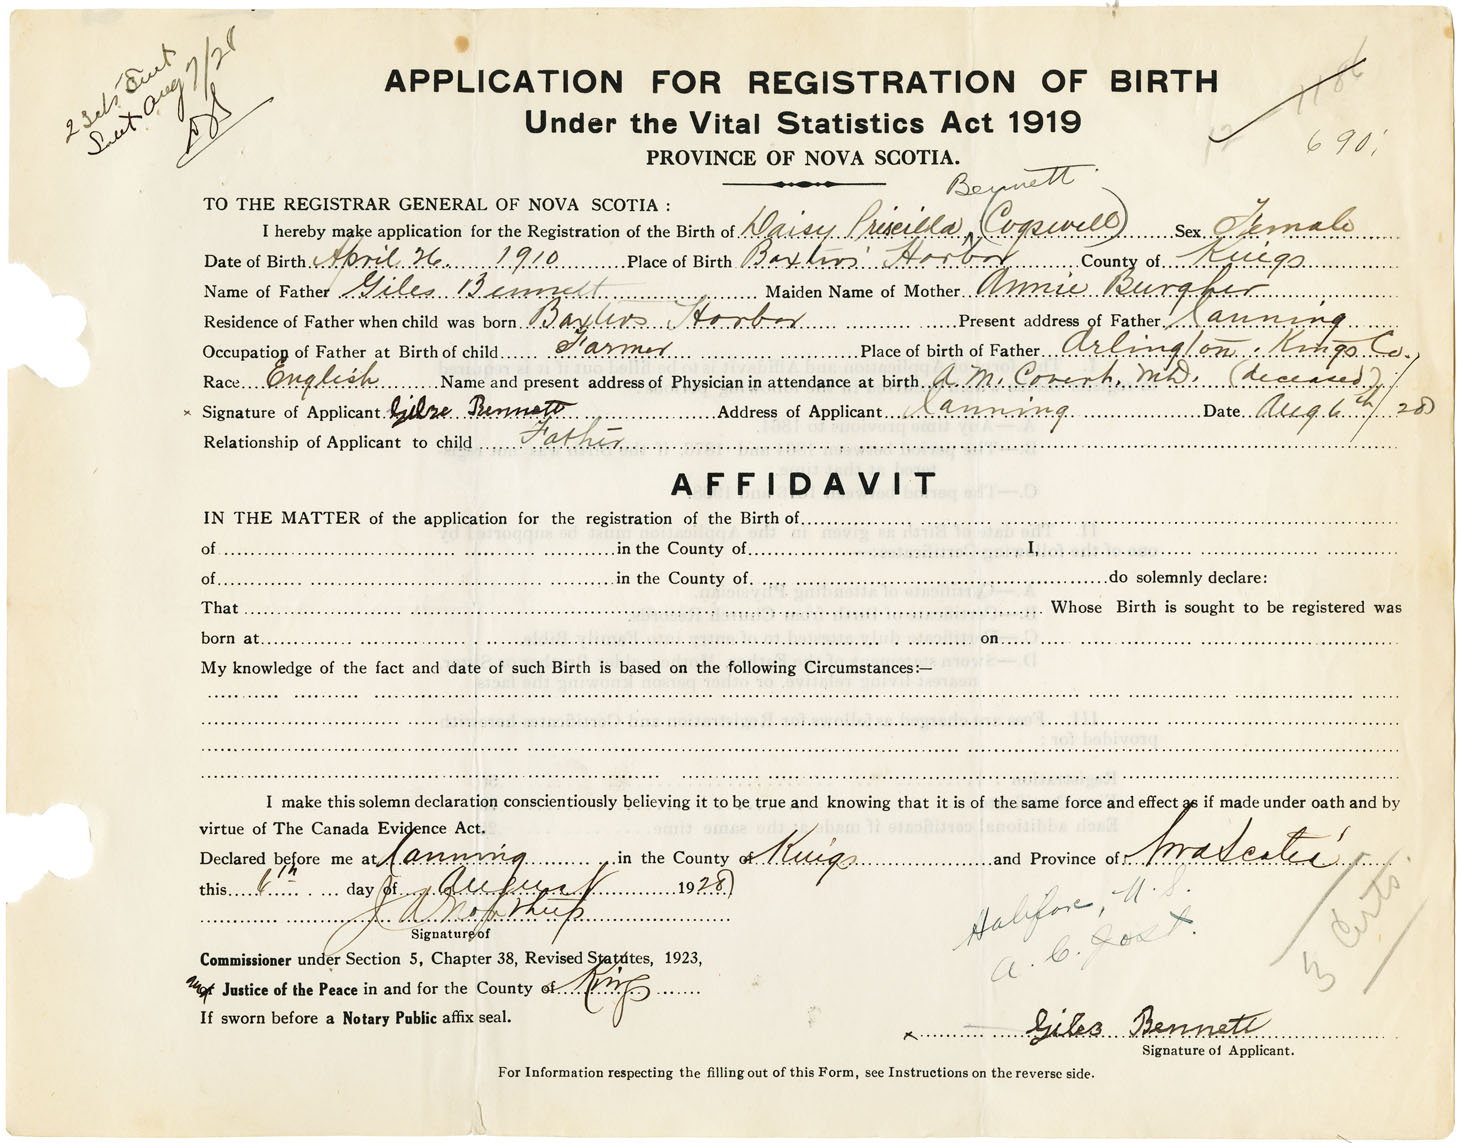 2 Sets Sent
Sent Aug 7/28
1186
690
APPLICATION FOR REGISTRATION OF BIRTH
Under the Vital Statistics Act 1919
PROVINCE OF NOVA SCOTIA.
Bennett
TO THE REGISTRAR GENERAL OF NOVA SCOTIA :
I hereby make application for the Registration of the Birth of Daisy Priscilla (Cogswell) Sex Female
Date of Birth April 26 1910 Place of Birth Baxters Harbor County of Kings
Name of Father Giles Bennett Maiden Name of Mother Annie Burgher
Residence of Father when child was born Baxters Harbor Present address of Father Canning
Occupation of Father at Birth of child Farmer Place of birth of Father Arlington, Kings Co.
Race English Name and present address of Physician in attendance at birth A. M. Covert, M.D. (deceased)
x Signature of Applicant Gilse Bennett Address of Applicant Canning Date Aug 6th / 28
Relationship of Applicant to child Father
AFFIDAVIT
IN THE MATTER of the application for the registration of the Birth of
of in the County of I,
of in the County of. do solemnly declare:
That Whose Birth is sought to be registered was
born at on
My knowledge of the fact and date of such Birth is based on the following Circumstances:—
I make this solemn declaration conscientiously believing it to be true and knowing that it is of the same force and effect as if made under oath and by
virtue of The Canada Evidence Act.
Declared before me at Canning in the County of Kings and Province of Nova Scotia
this 6th day of August 1928
J A Northup
Signature of
Halifax, N. S.
A. C. Jost.
3 Certs
Commissioner under Section 5, Chapter 38, Revised Statutes, 1923,
and Justice of the Peace in and for the County of Kings
If sworn before a Notary Public affix seal.
x Giles Bennett
Signature of Applicant.
For Information respecting the filling out of this Form, see Instructions on the reverse side.